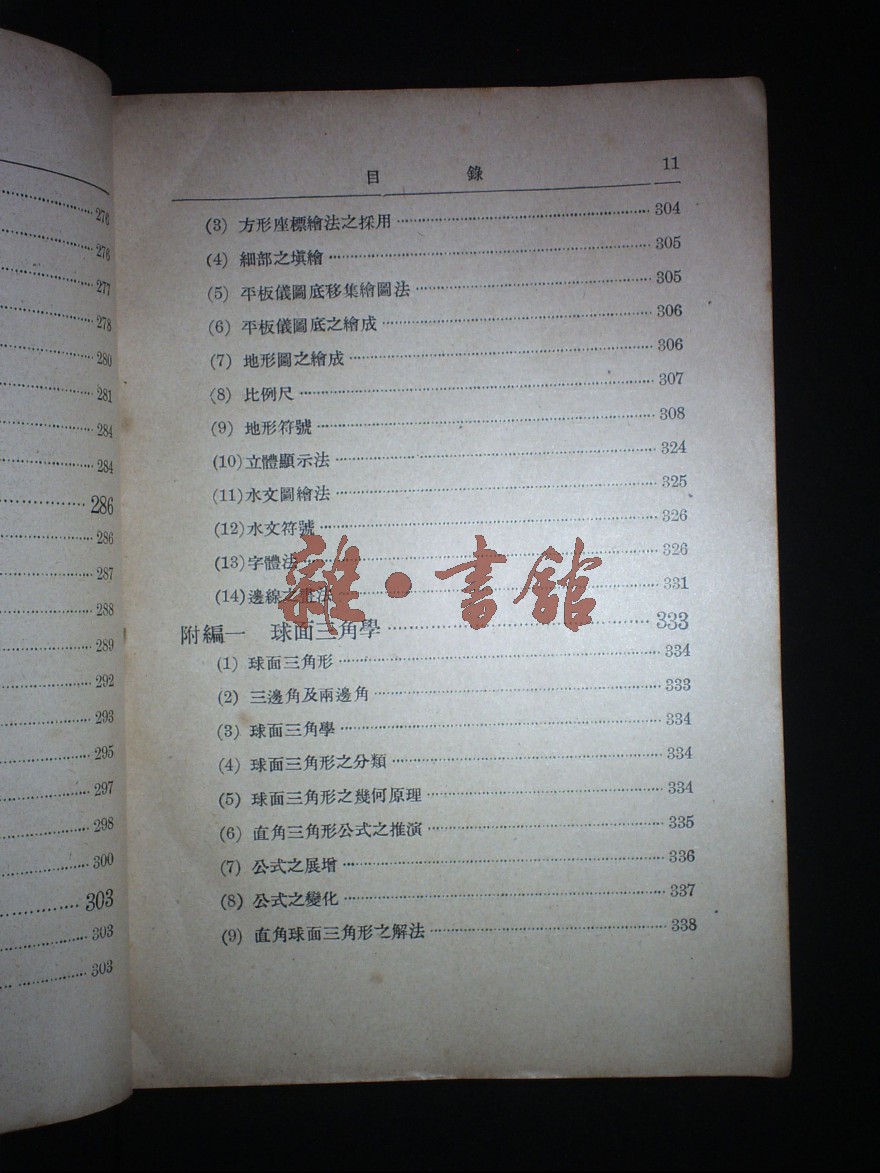 276
276
277
278
280
281
284
284
286
286
287
288
289
292
293
295
297
298
300
303
303
303
目錄 11
(3) 方形座標繪法之採用 304
(4) 細部之塡繪 305
(5) 平板儀圖底移集繪圖法 305
(6) 平板儀圖底之繪成 306
(7) 地形圖之繪成 306
(8) 比例尺 307
(9) 地形符號 308
(10) 立體顯示法 324
(11) 水文圖繪法 325
(12) 水文符號 326
(13) 字體法 326
(14) 邊線之畫法 331
雜·書館
附編一 球面三角學 333
(1) 球面三角形 334
(2) 三邊角及兩邊角 333
(3) 球面三角學 334
(4) 球面三角形之分類 334
(5) 球面三角形之幾何原理 334
(6) 直角三角形公式之推演 335
(7) 公式之展增 336
(8) 公式之變化 337
(9) 直角球面三角形之解法 338